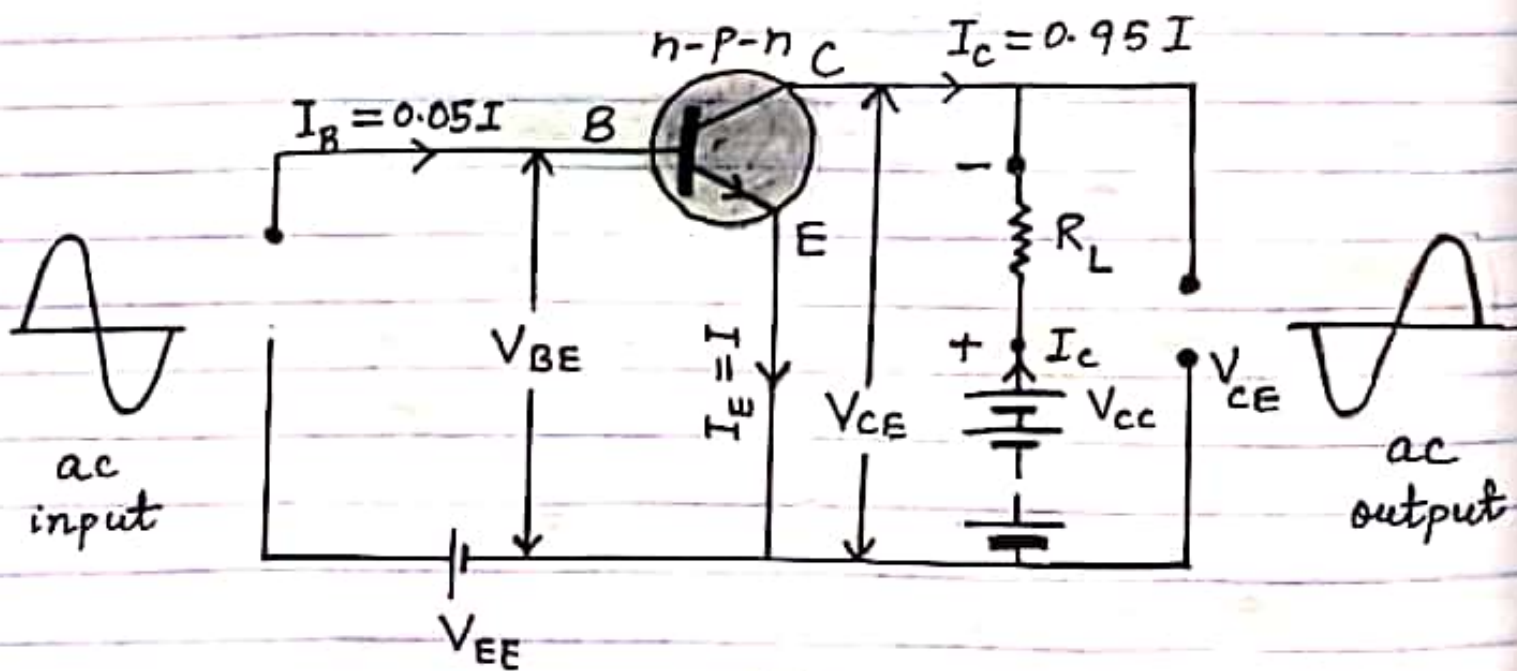 n-p-n
C
I_C = 0.95 I
I_B = 0.05 I
B
E
-
R_L
+
I_C
V_BE
I_E = I
V_CE
V_CC
V_CE
ac
input
ac
output
V_EE